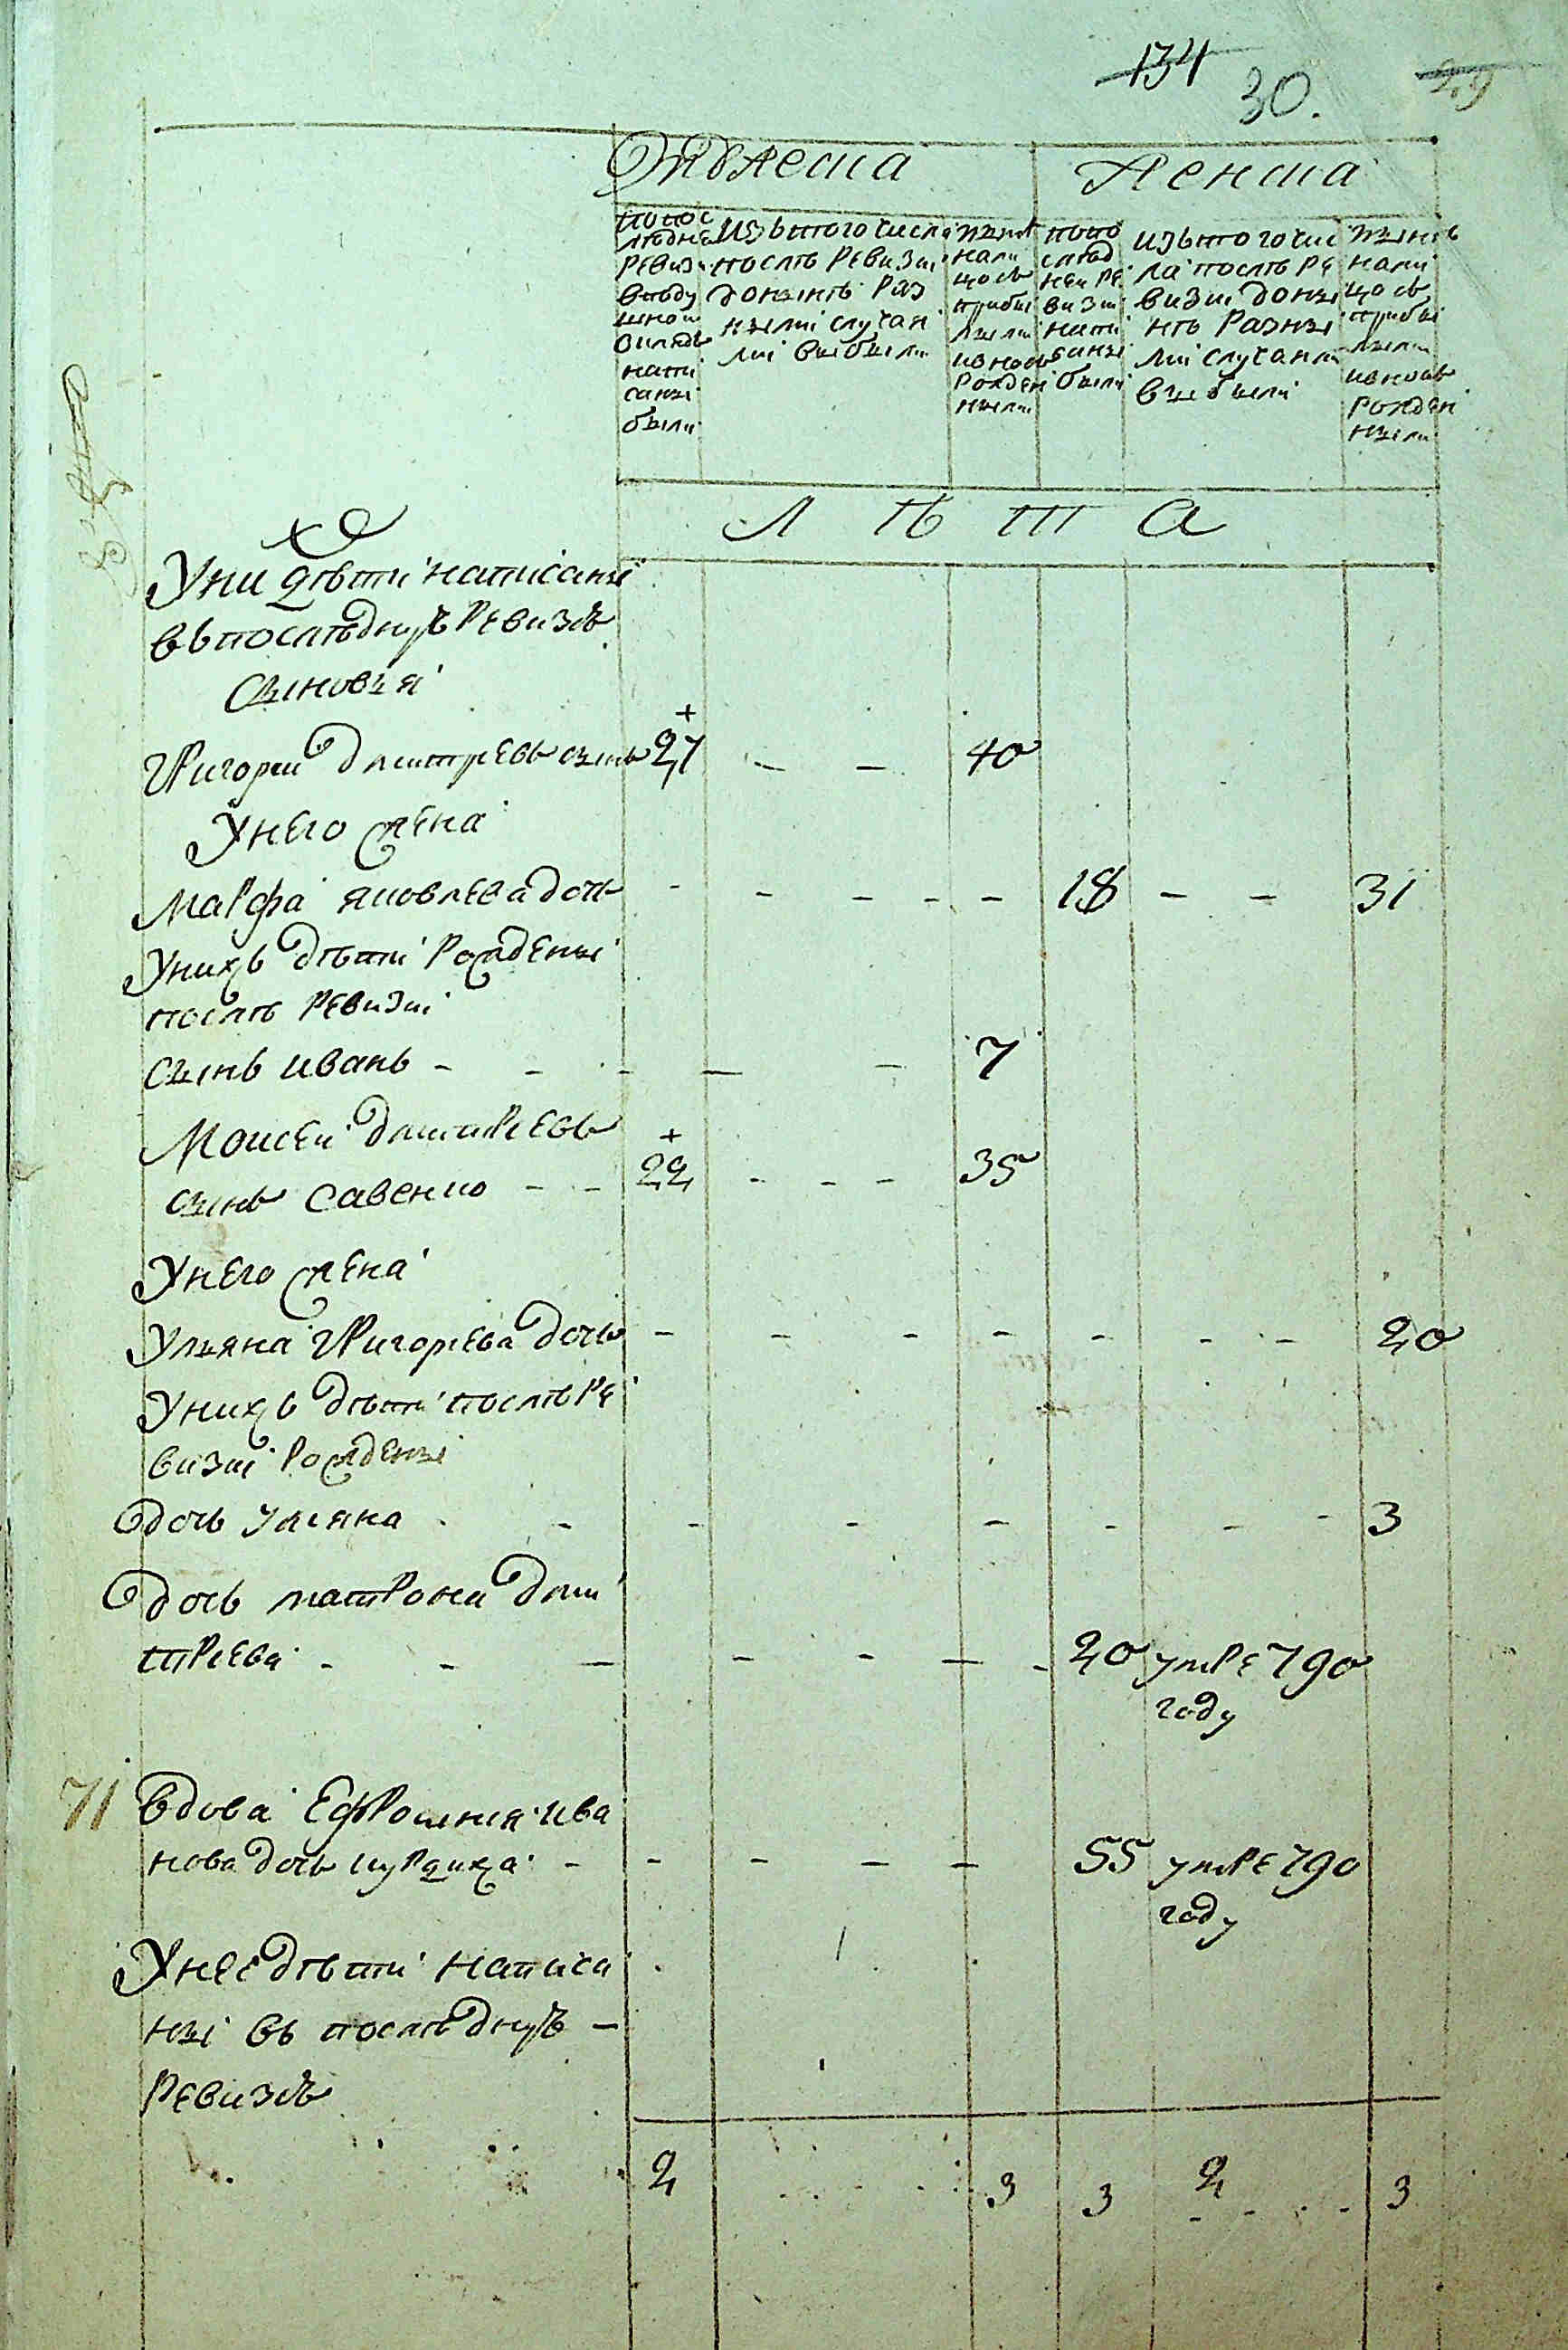 134 30. 29
Мужеска Женска
попос
лѣднѣ
ревизи
вподу
шной
окладъ
напи
саны
были
изътого числа
послѣ ревизи
донынѣ раз
ными случаі
ми выбыли
нынѣ
нали
цось
прибы
лыми
ивновь
рожден
ными
попо
слѣд
неи ре
визии
напи
саны
были
изътого чис
ла послѣ ре
визии доны
нѣ разны
ми случаями
выбыли
нынѣ
нали
цось
прибы
лыми
ивновь
рожден
ными
Л ѣ т а
Уни дѣти написаны
въпослѣднуѣ ревизѣ
сыновья
Григореи дмитриевъ сынъ 27 - - 40
Унего жена
Марфа яковлева дочь - - - - - 18 - - 31
Унихъ дѣти рождены
послѣ ревизии
сынъ иванъ - - - - - 7
Моисеи дмитриевъ
сынъ савенко - - 22 - - - 35
Унего жена
Ульяна Григориева дочь - - - - - - - 20
Унихъ дѣти послѣ ре
визии рождены
дочь ульяна - - - - - - - 3
дочь матрона дми
триева - - - - - - - 20 умре 790
году
71 Вдова Ефросиния ива
нова дочь курдиха - - - - - 55 умре 790
году
Унее дѣти написа
ны въ послѣднуѣ -
ревизѣ
2 3 3 2 3